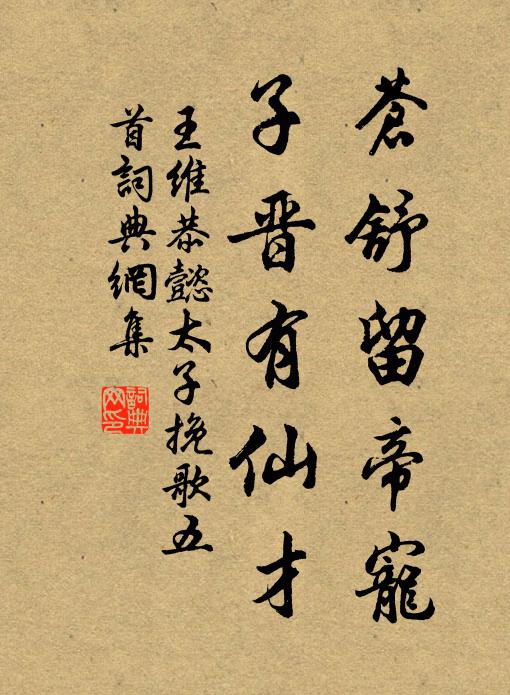 蒼舒留帝寵
子晋有仙才
王維恭懿太子挽歌五
首詞典網集
詞典
网印